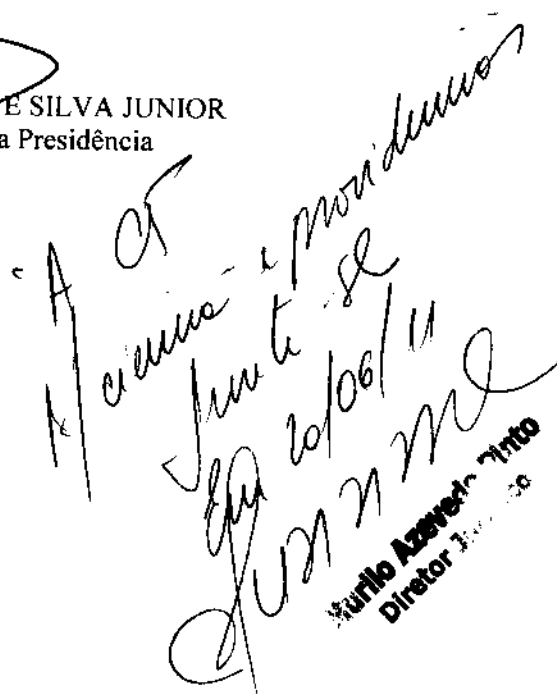 E SILVA JUNIOR
a Presidência
A CT
ciência e providências
Junte-se
Em 20/06/11
Murilo Azevedo Pinto
Diretor